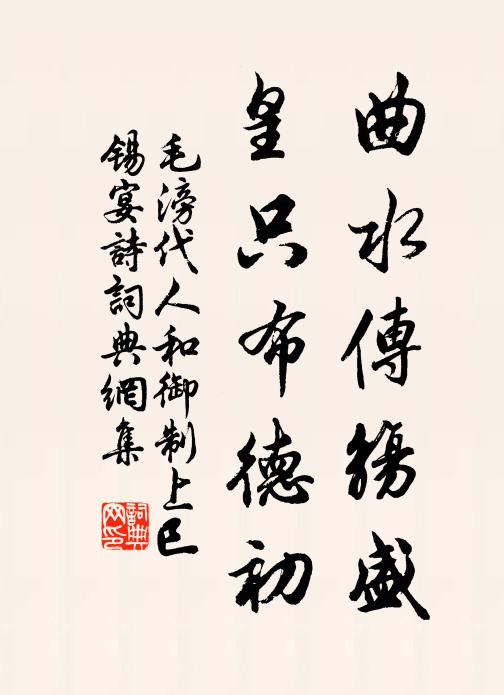 曲水傳觴盛
皇只布德初
毛滂代人和御制上巳
錫宴詩詞典網集
詞典网印